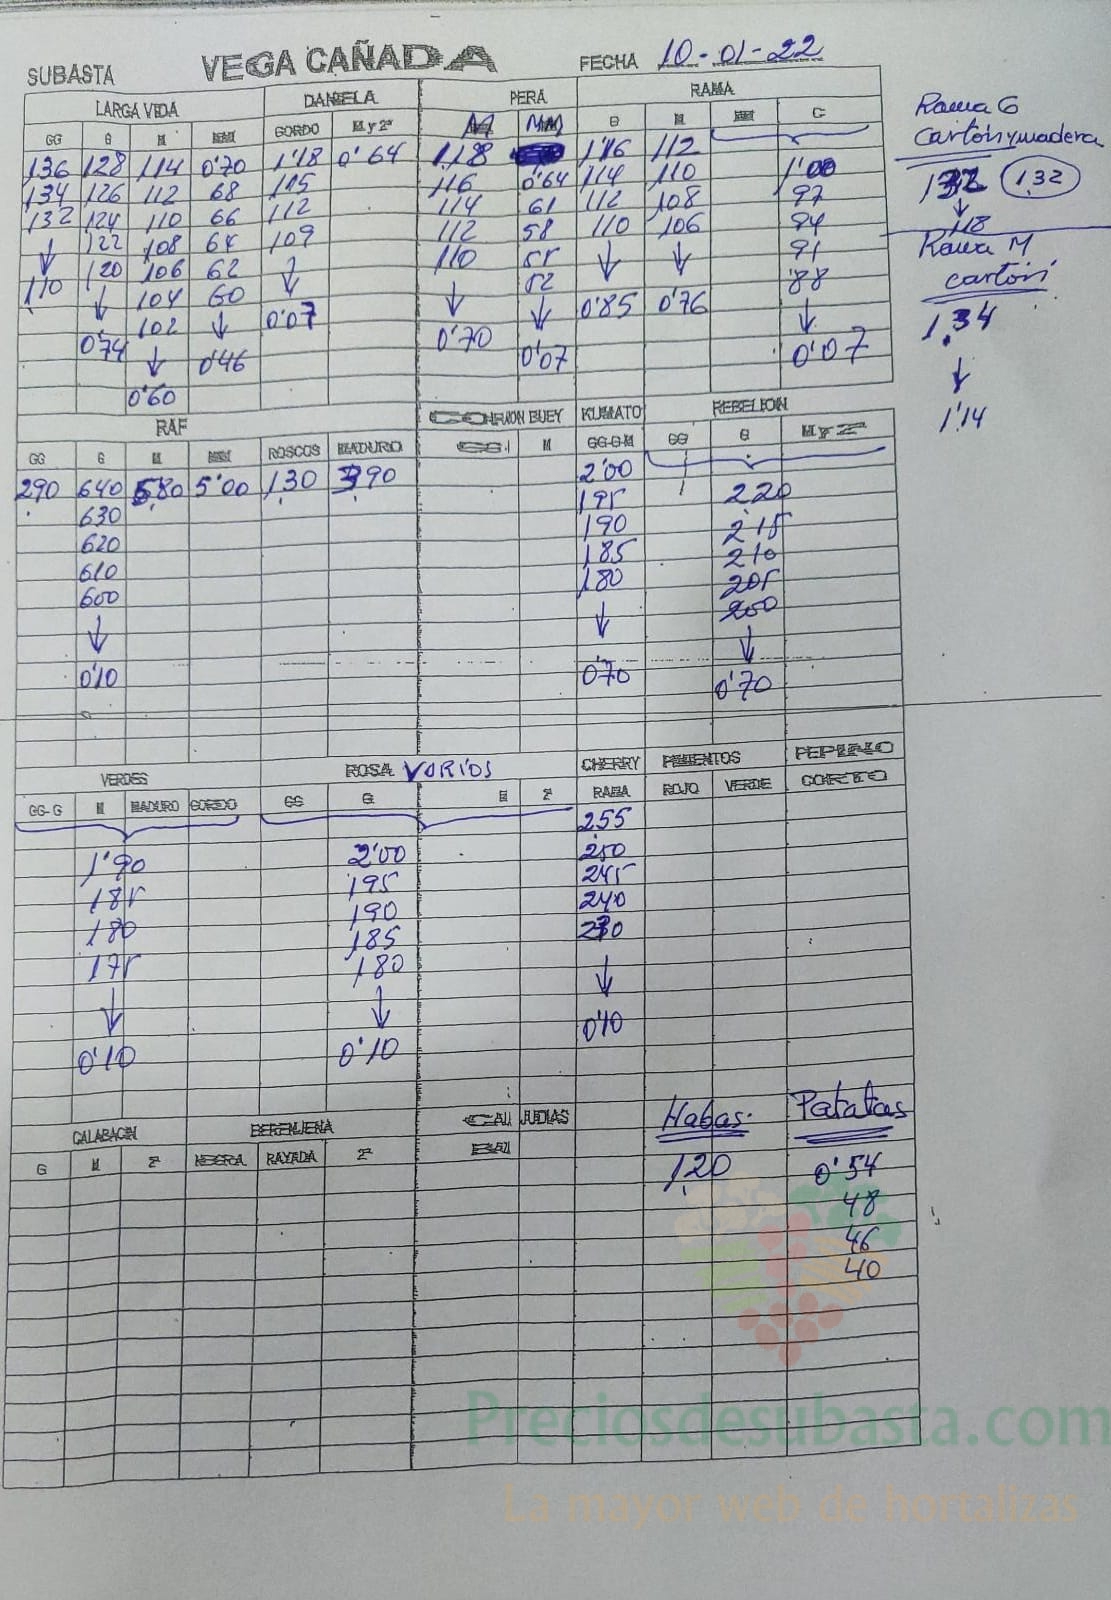 SUBASTA VEGA CAÑADA FECHA 10-01-22
LARGA VIDA DANIELA PERA RAMA
GG G M MM GORDO M y 2ª M MM G M MM C
136 128 114 0'70 1'18 0'64 1,18 1'16 112
134 126 112 68 115 116 0'64 114 110 1'00
132 124 110 66 112 114 61 112 108 97
122 108 64 109 112 58 110 106 94
110 120 106 62 110 55 91
104 60 52 0'85 0'76 88
0'74 102 0'46 0'07 0'70 0'07 0'07
0'60
Rama G
Cartón y madera
132 1,32
118
Rama M
cartón
1,34
1'14
RAF CORAZON BUEY KUMATO REBELION
GG G M MM ROSCOS MADURO GG. M GG-G-M GG G M y 2ª
290 640 580 5'00 1,30 390 2'00
630 195 2,20
620 190 215
610 185 210
600 180 205
200
0'10 0'70 0'70
VERDES ROSA VARIOS CHERRY PIMIENTOS PEPINO
GG-G M MADURO GORDO GG G M 2ª RAMA ROJO VERDE CORTO
255
1'90 2'00 250
185 195 245
180 190 240
175 185 230
180
0'10 0'10 0'10
CALABACIN BERENJENA JUDIAS Habas. Patatas
G M 2ª NEGRA RAYADA 2ª
1,20 0'54
48
46
40
Preciosdesubasta.com
La mayor web de hortalizas